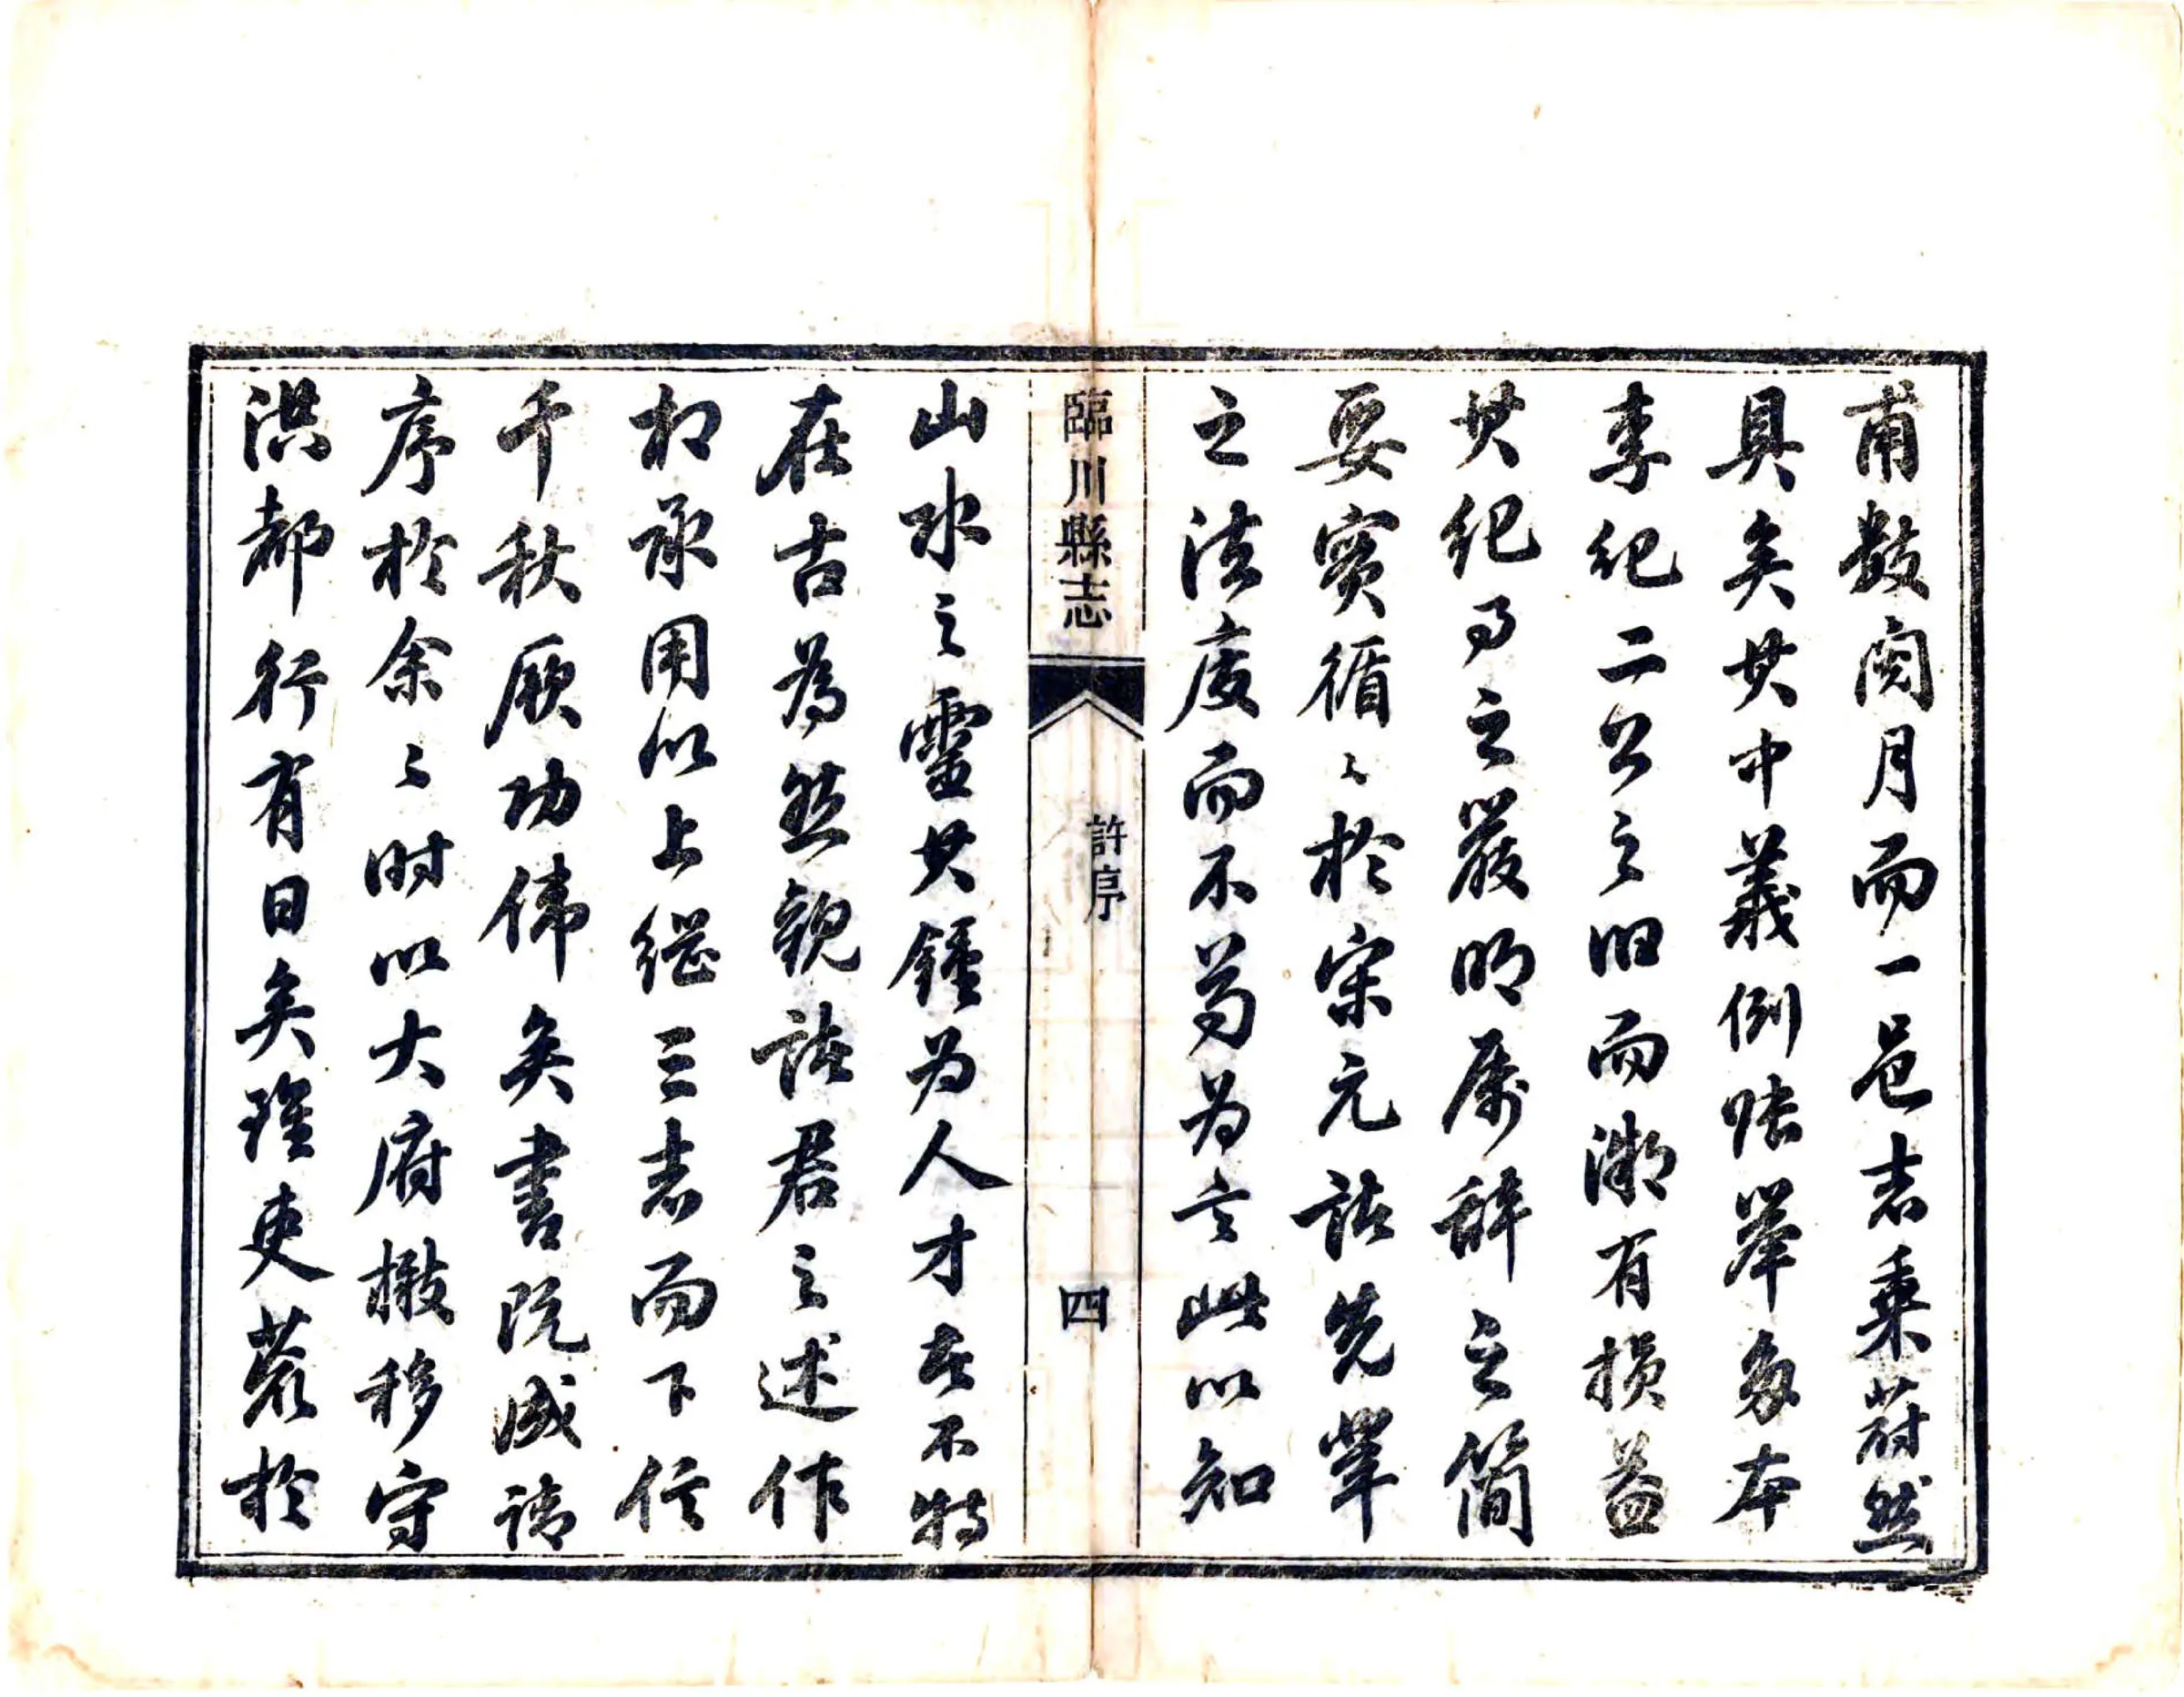 甫數閱月而一邑志乘蔚然
具矣其中義例賅舉多本
李紀二公之旧而潮有損益
其紀事之嚴明属辞之簡
要實循〻於宋元諸先輩
之法度而不苟为言此以知
山水之靈其鍾为人才者不特
在古為然觀諸君之述作
相承用以上繼三志而下信
千秋厥功偉矣書既成請
序於余〻时以大府檄移守
洪都行有日矣瑾吏荒於
臨川縣志
許序
四